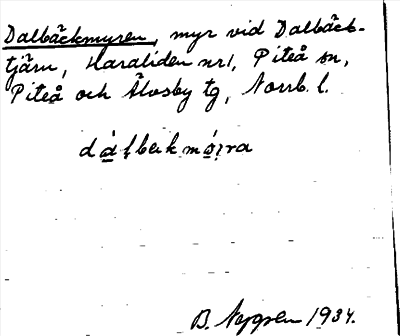 Dalbäckmyren, myr vid Dalbäck-
tjärn, Haraliden nr1, Piteå sn,
Piteå och Älvsby tg, Norrb. l.
B. Nygren 1934.